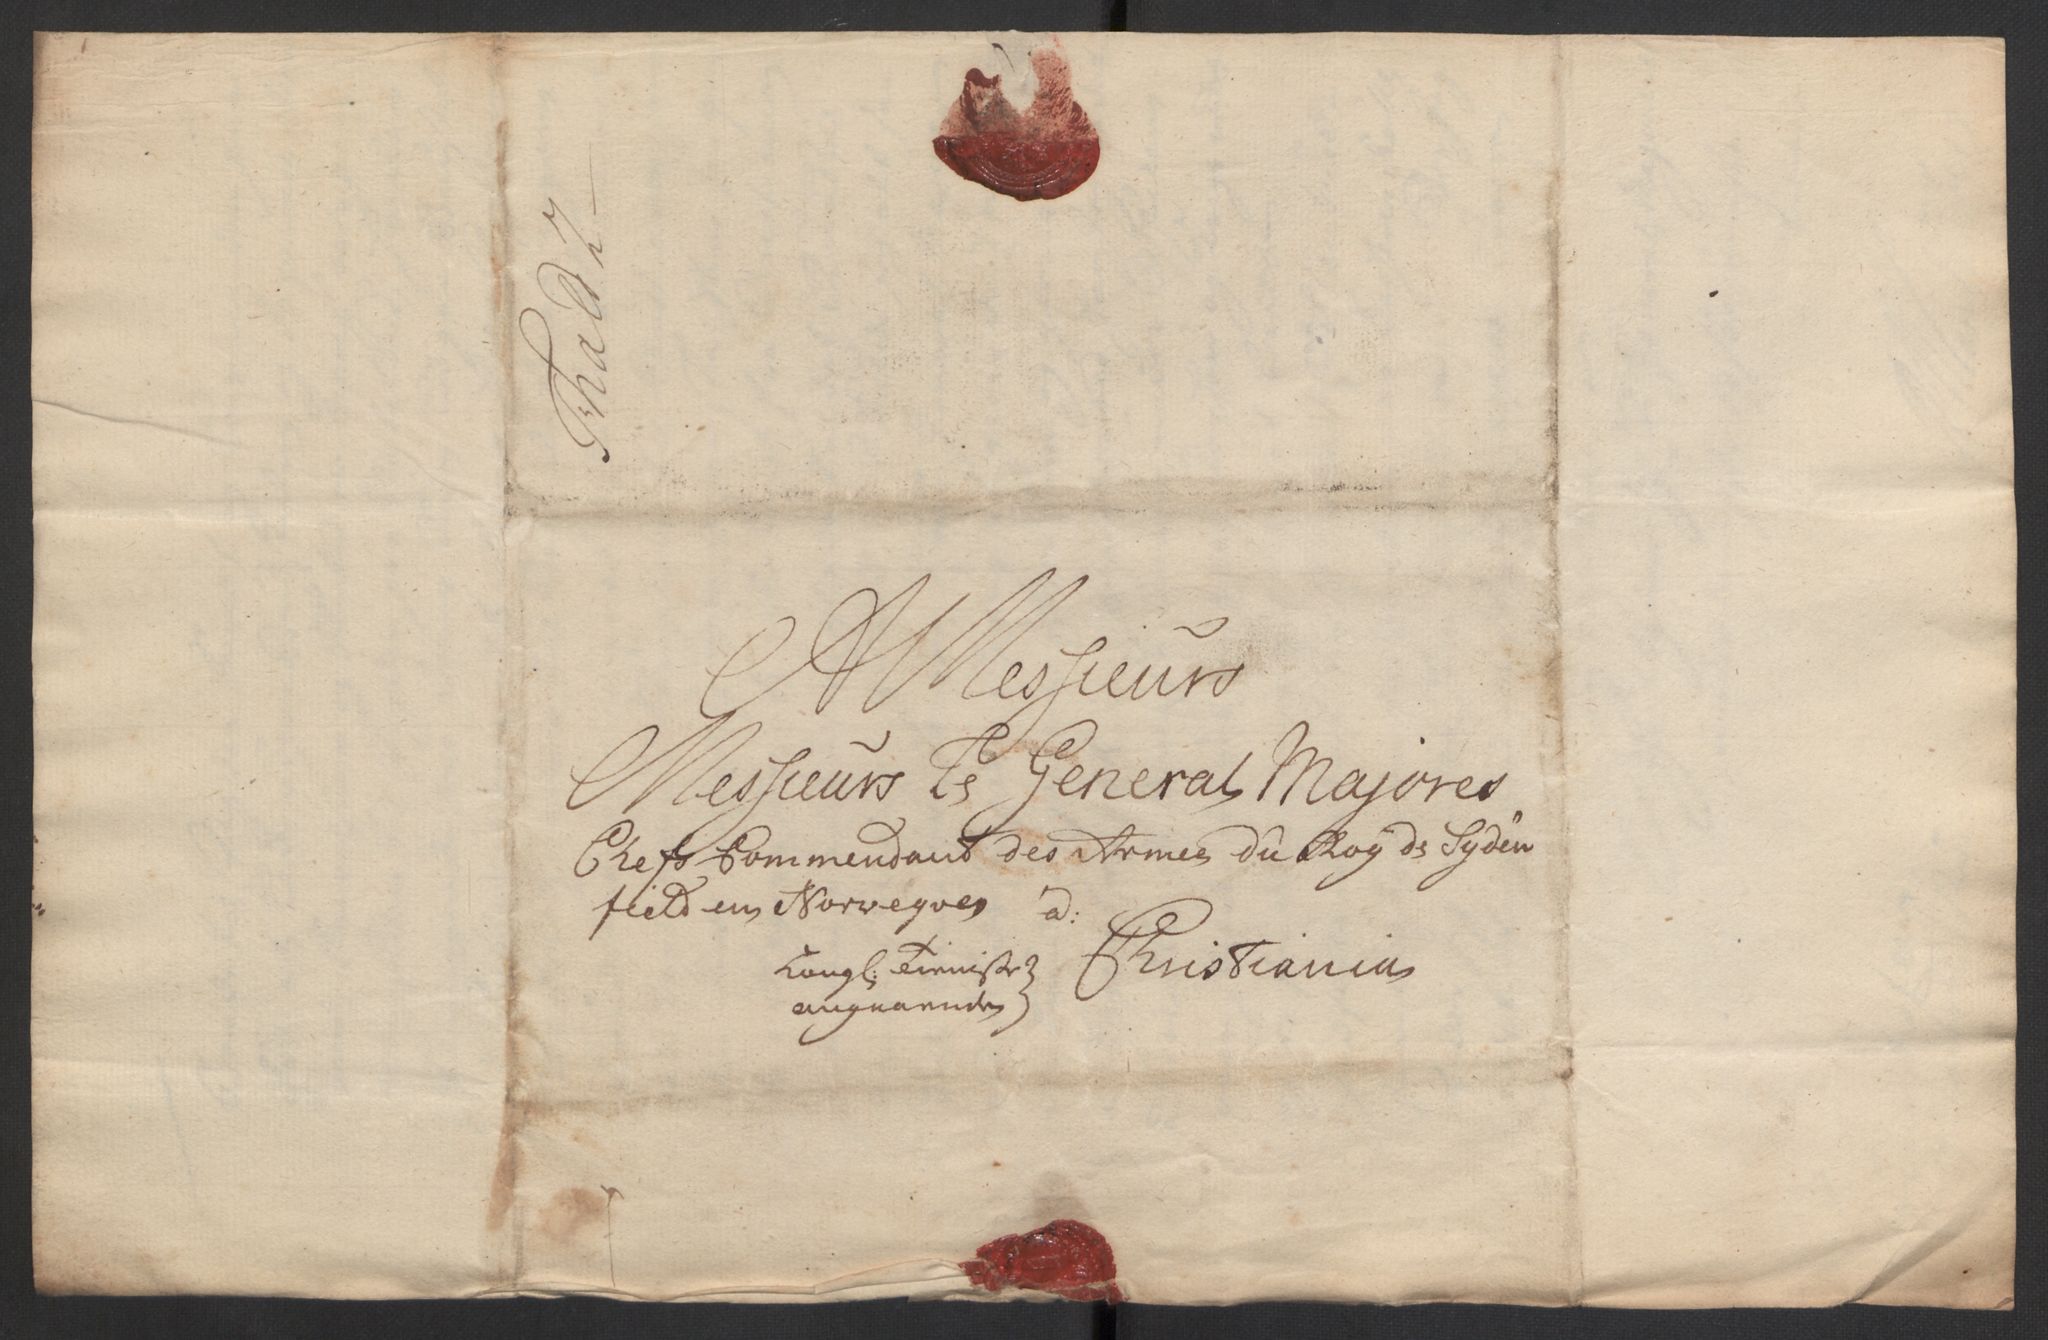 Fhald
A Messieurs
Messieurs Ls General Majores
Chefs Commendant des Armes du Roÿ ds Syden
field en Norweques a:
Christiania
Kongl: Tieniste
angaaende